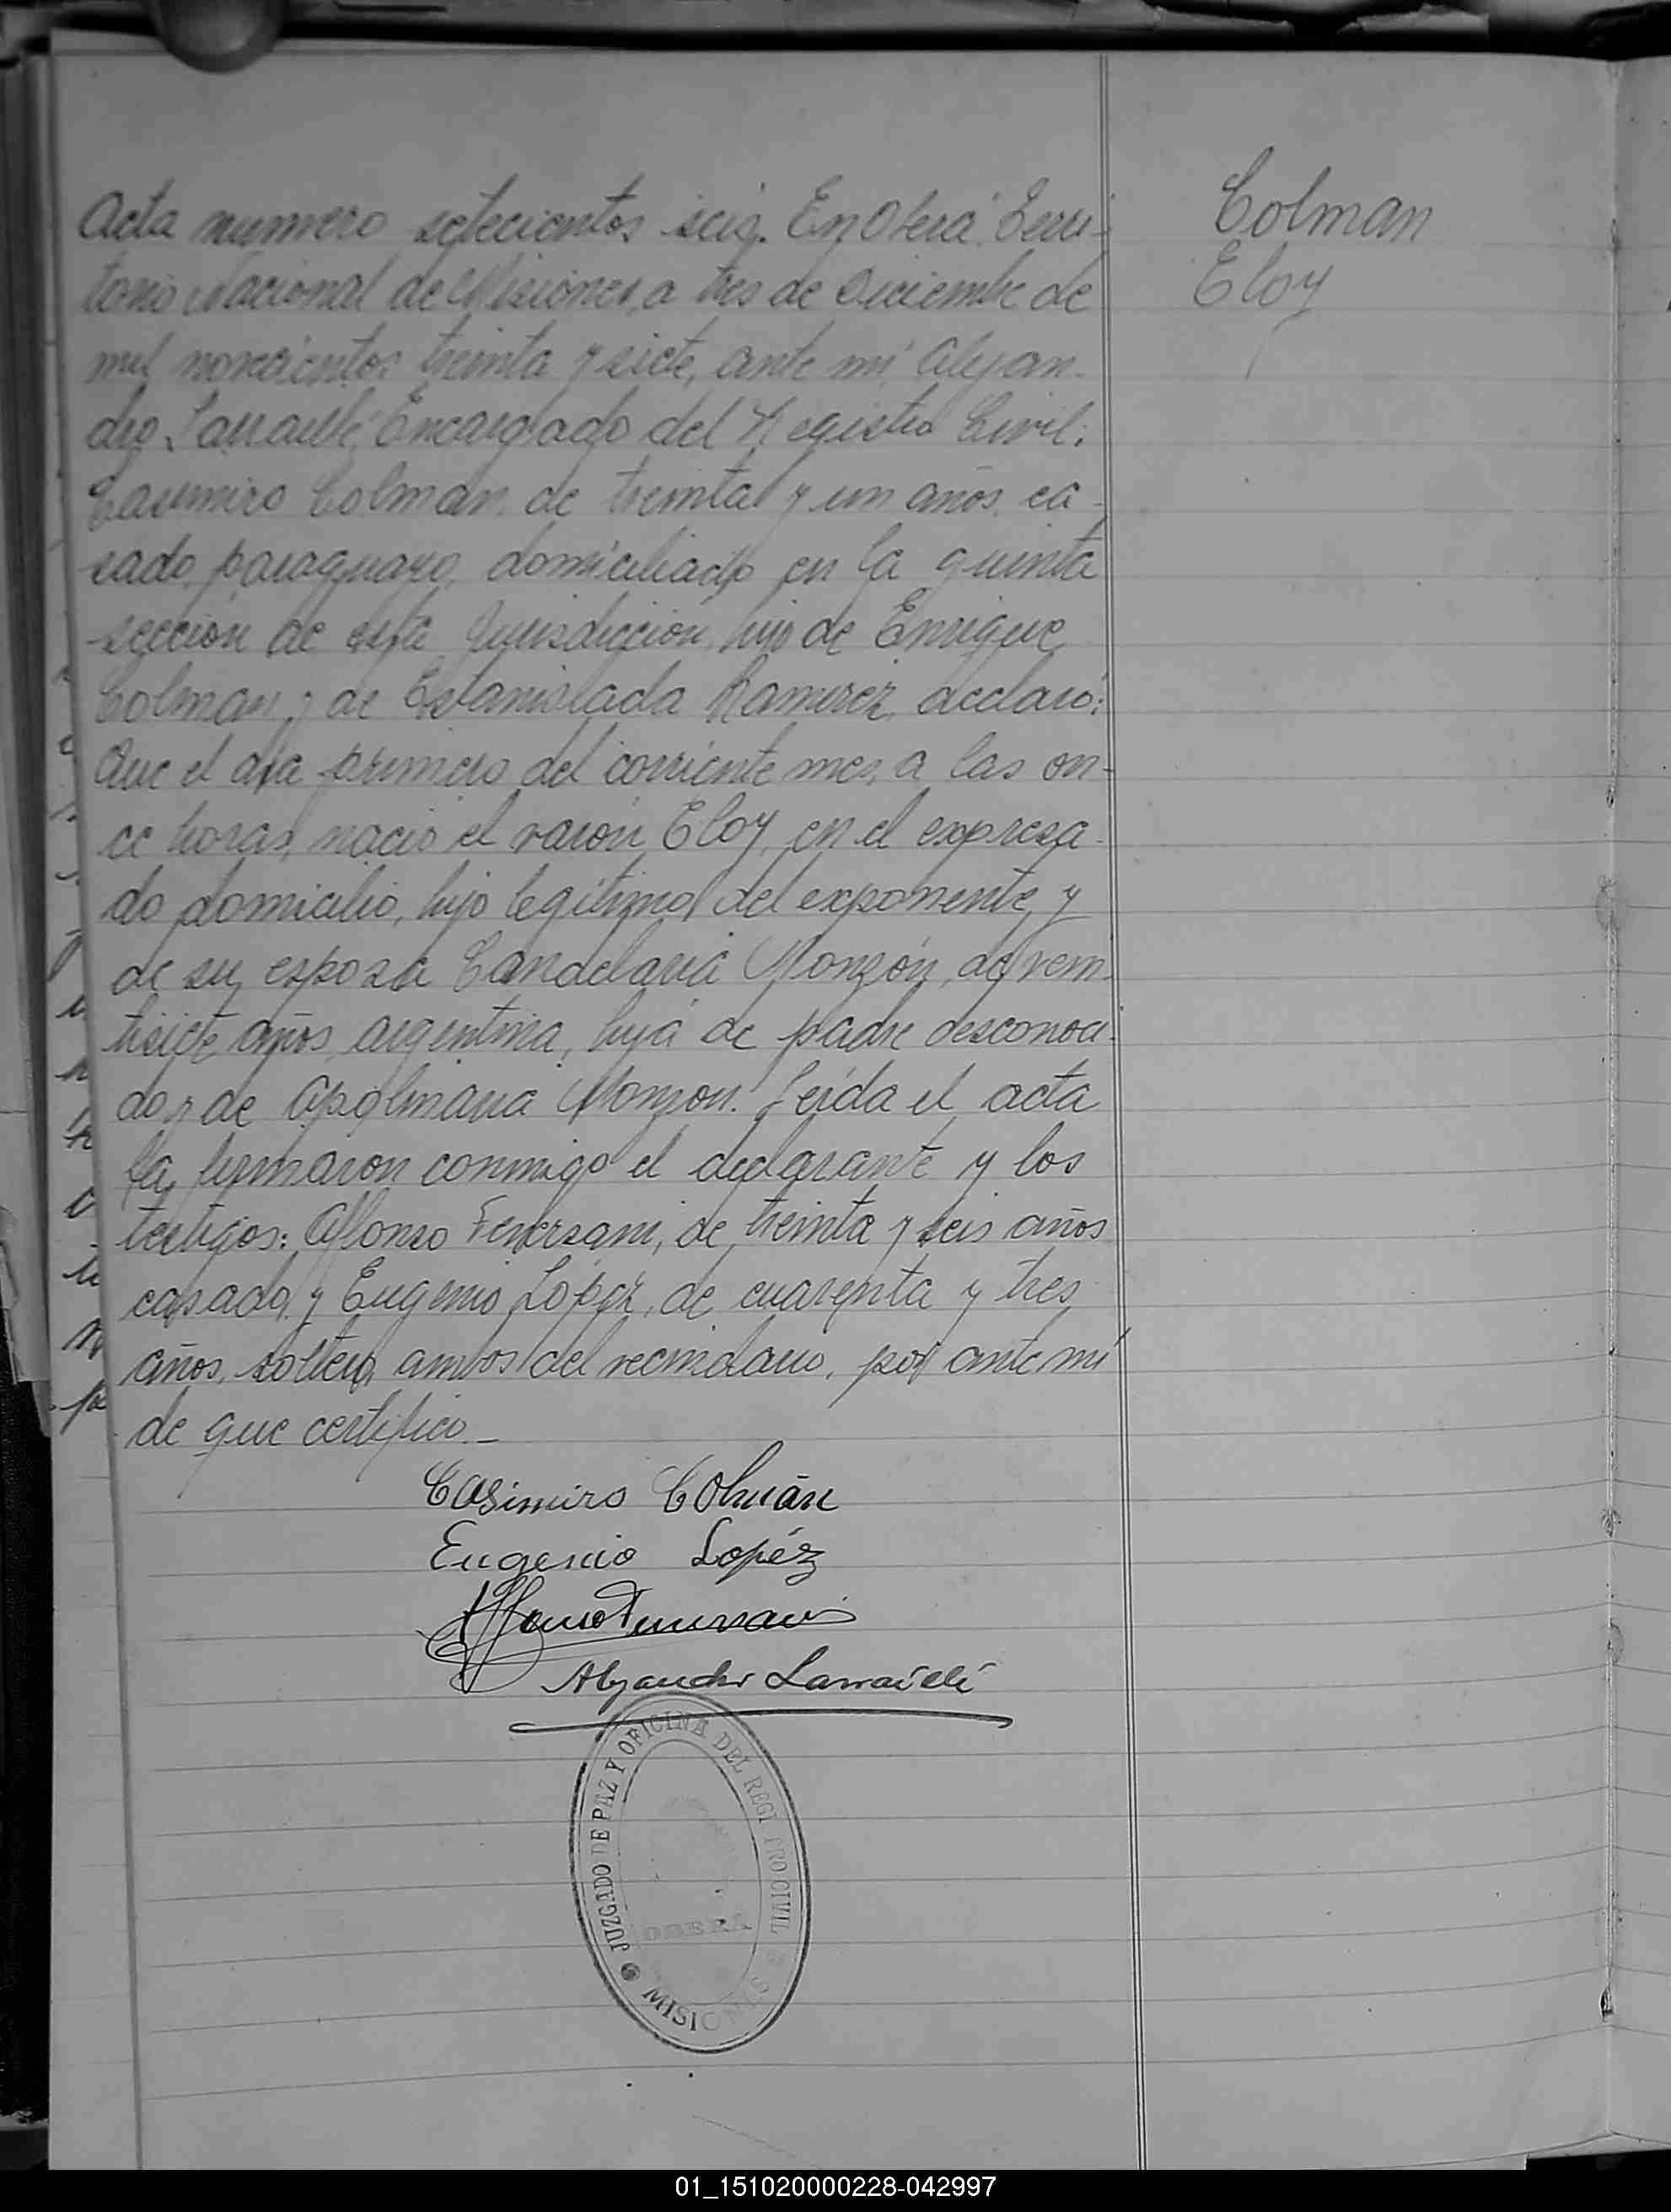 Colman
Eloy
Acta numero setecientos seis. En Oberá Terri-
torio Nacional de Misiones, a tres de Diciembre de
mil novecientos treinta y siete, ante mi Alejan-
dro Encargado del Registro Civil:
Casimiro Colman, de treinta y un años, ca-
sado, paraguayo, domiciliado en la quinta
sección de esta Jurisdicción, hijo de Enrique
Colman y de Estanislada Ramirez, declaró:
Que el día primero del corriente mes, a las on-
ce horas, nació el varón Eloy, en el expresa-
do domicilio, hijo legítimo del exponente, y
de su esposa Candelaria Monzón, de vein-
tisiete años, argentina, hija de padre desconoci-
do y de Monzon. Leída el acta
la firmaron conmigo el declarante y los
testigos: Alfonso de treinta y seis años
casado, y Eugenio López, de cuarenta y tres
años, soltero, ambos del vecindario, por ante mi
de que certifico._
Casimiro Colmán
Eugenio Lopéz
Alejandro
JUZGADO DE PAZ Y OFICINA DEL REGISTRO CIVIL
OBERA
MISIONES
01_151020000228-042997